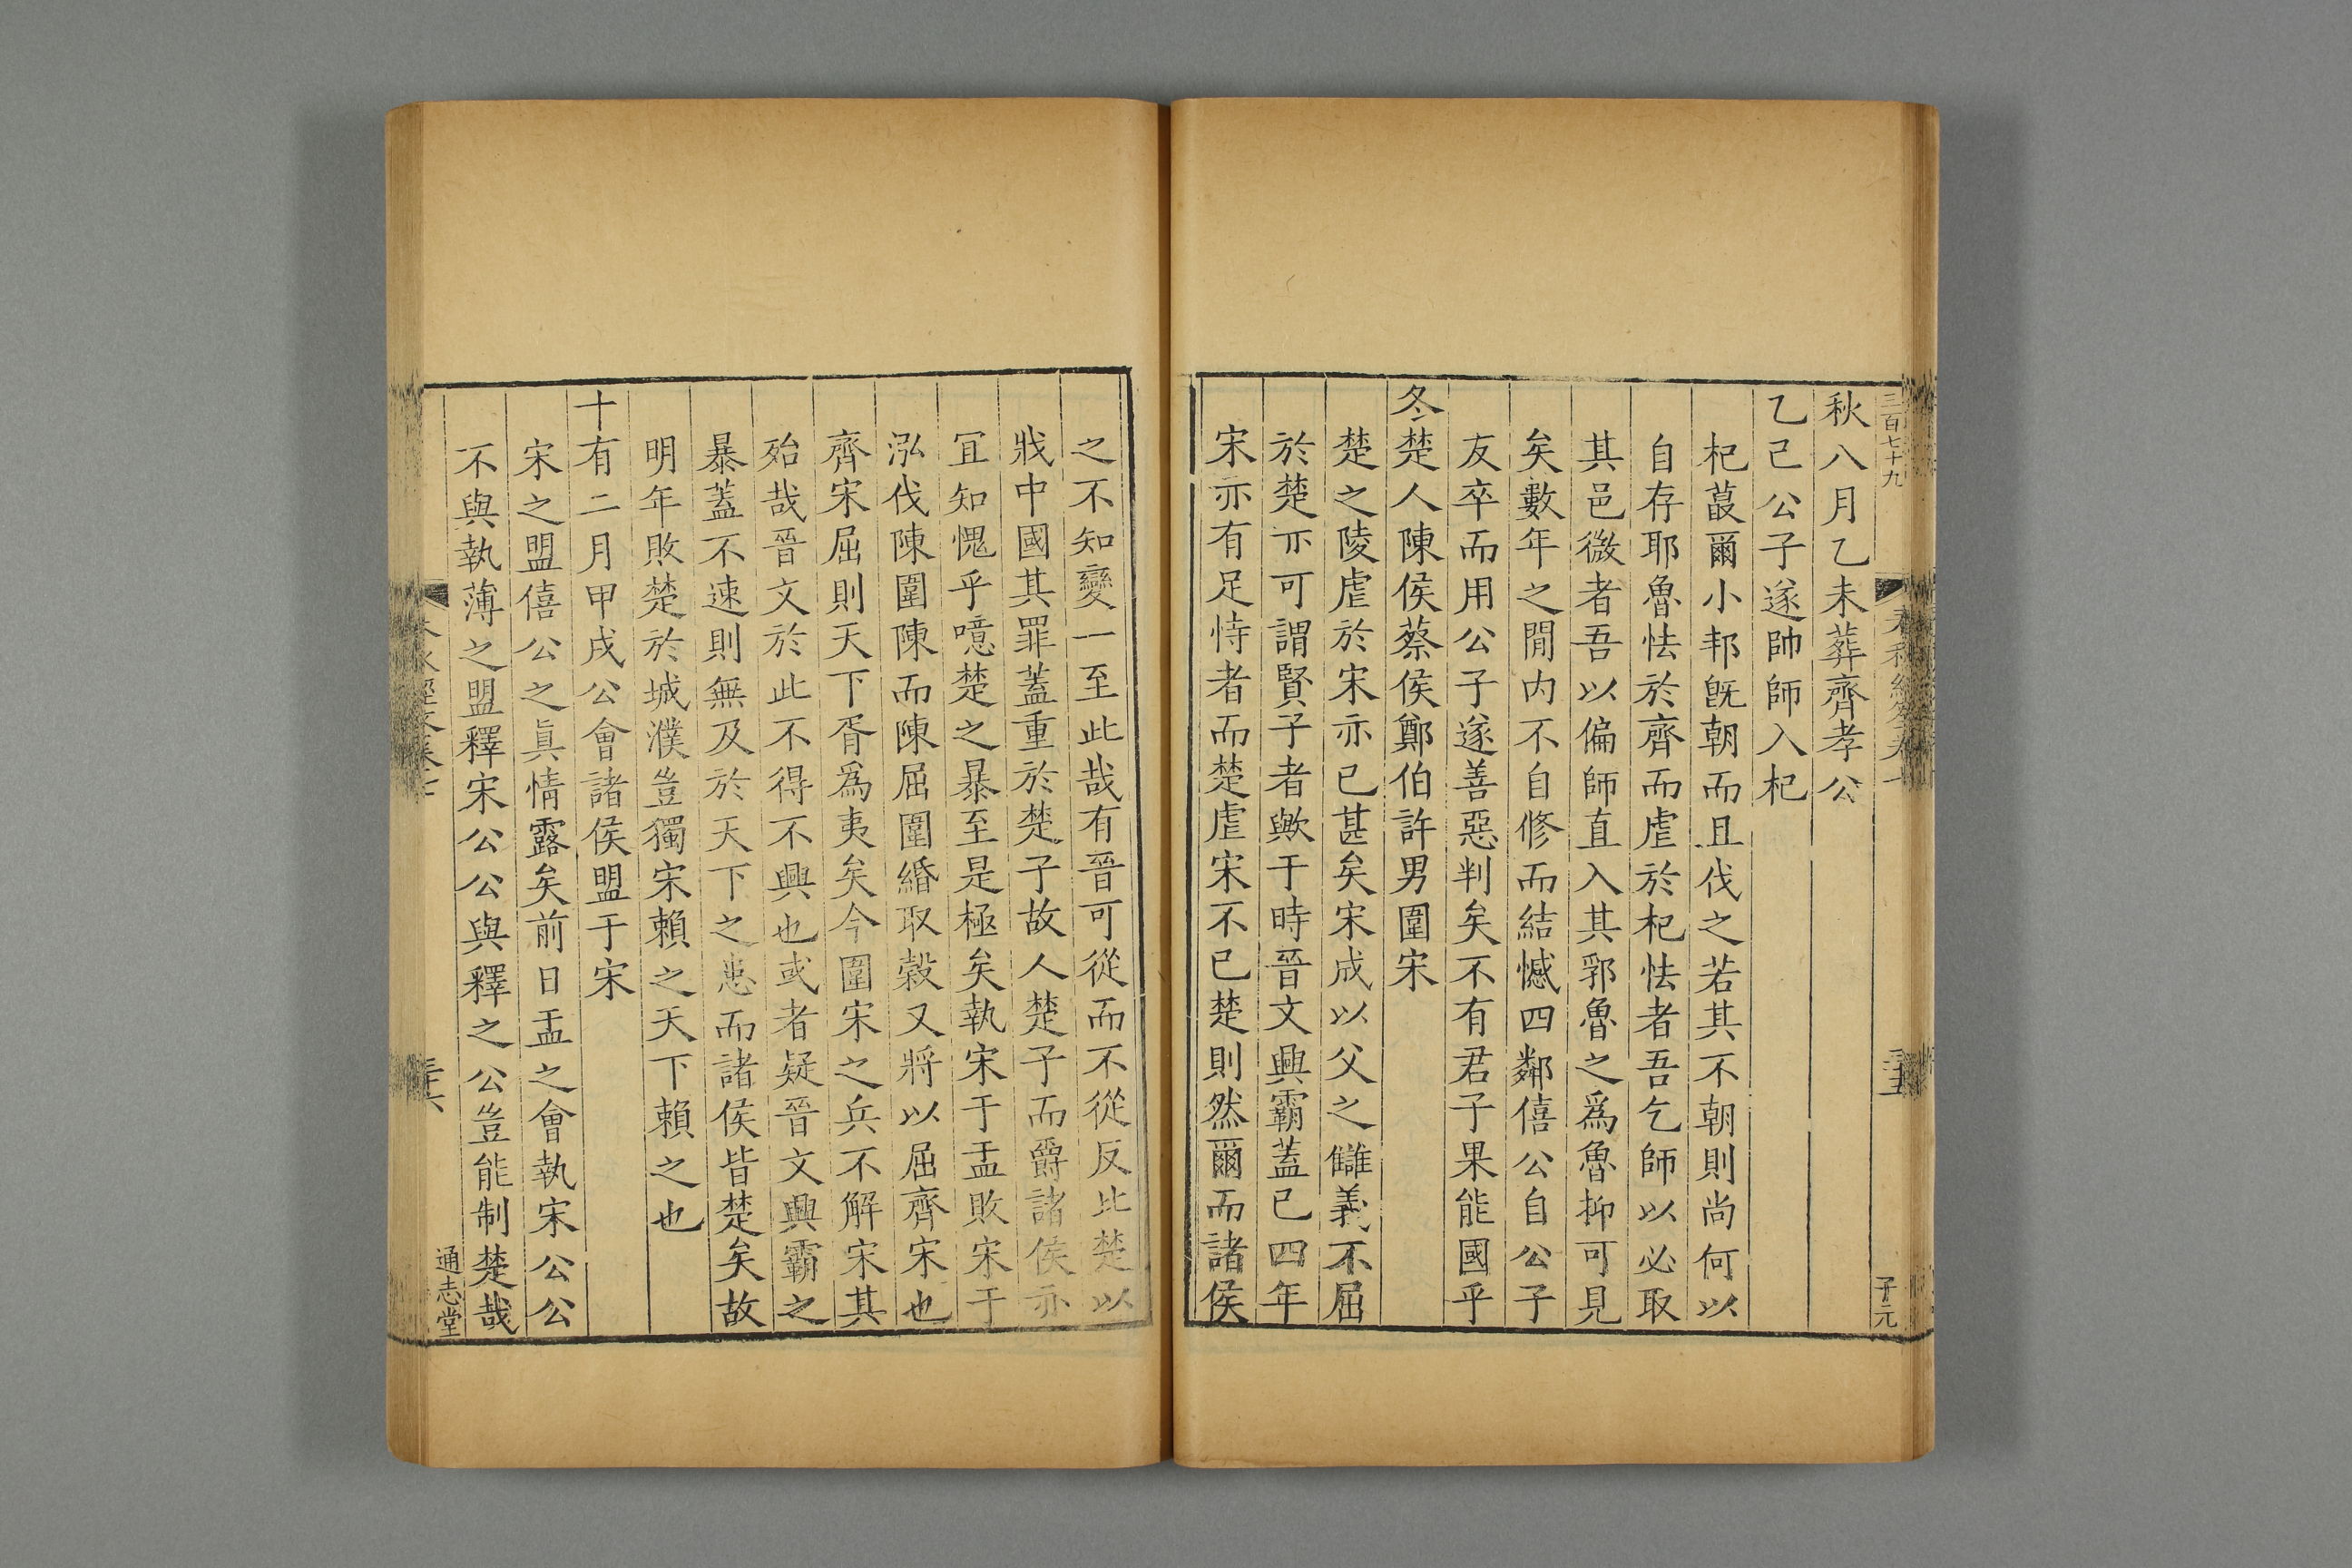 三百七十九
子元
秋八月乙未葬齊孝公
乙己公子遂帥師入杞
杞蕞爾小邦旣朝而且伐之若其不朝則尚何以
自存耶魯怯於齊而虐於杞怯者吾乞師以必取
其邑微者吾以偏師直入其郛魯之爲魯抑可見
矣數年之閒内不自修而結憾四鄰僖公自公子
友卒而用公子遂善惡判矣不有君子果能國乎
冬楚人陳侯蔡侯鄭伯許男圍宋
楚之陵虐於宋亦已甚矣宋成以父之讎義不屈
於楚亦可謂賢子者歟于時晉文興霸蓋已四年
宋亦有足恃者而楚虐宋不已楚則然爾而諸侯
之不知變一至此哉有晉可從而不從反比楚以
戕中國其罪蓋重於楚子故人楚子而爵諸侯亦
冝知愧乎噫楚之暴至是極矣執宋于盂敗宋于
泓伐陳圍陳而陳屈圍緡取榖又將以屈齊宋也
齊宋屈則天下胥爲夷矣今圍宋之兵不解宋其
殆哉晉文於此不得不興也或者疑晉文興霸之
暴蓋不速則無及於天下之患而諸侯皆楚矣故
明年敗楚於城濮豈獨宋賴之天下賴之也
十有二月甲戌公會諸侯盟于宋
宋之盟僖公之眞情露矣前日盂之會執宋公公
不與執薄之盟釋宋公公與釋之公豈能制楚哉
通志堂